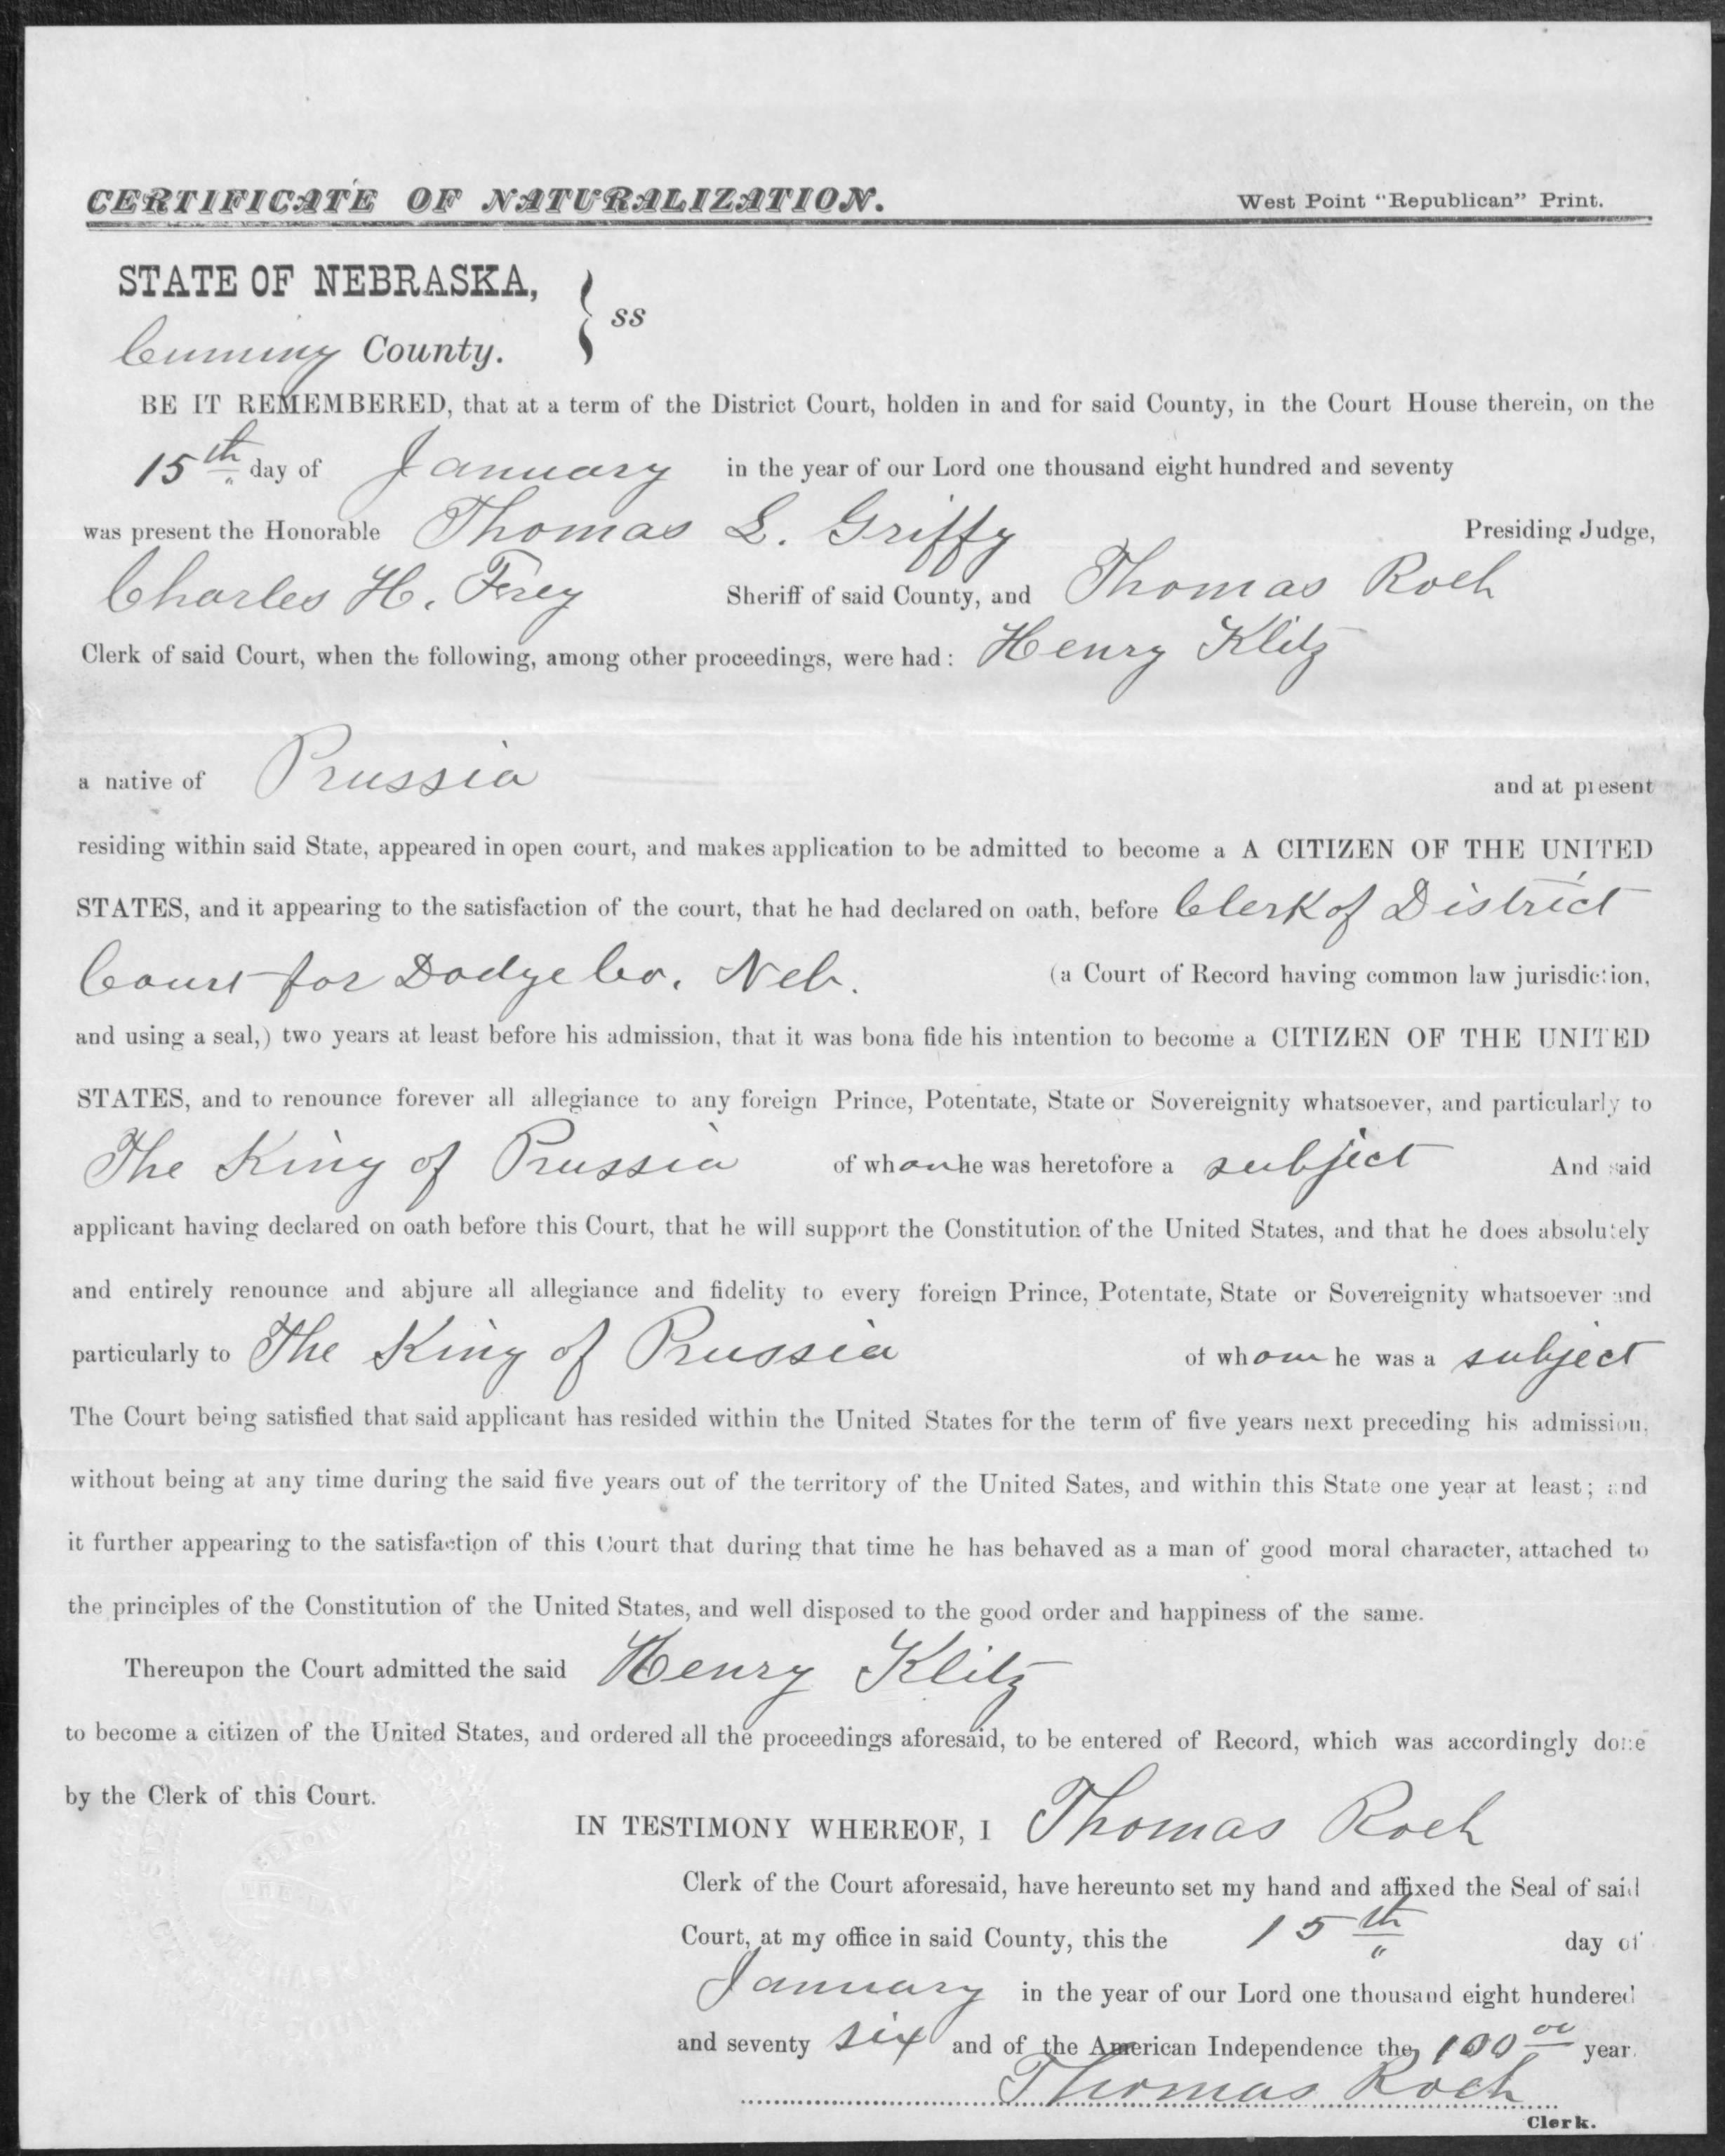 CERTIFICATE OF NATURALIZATION. West Point "Republican" Print.
STATE OF NEBRASKA,
ss
Cuming County.
BE IT REMEMBERED, that at a term of the District Court, holden in and for said County, in the Court House therein, on the
15th day of January in the year of our Lord one thousand eight hundred and seventy
was present the Honorable Thomas L. Griffy Presiding Judge,
Charles H. Frey Sheriff of said County, and Thomas Roch
Clerk of said Court, when the following, among other proceedings, were had: Henry Klitz
a native of Prussia and at present
residing within said State, appeared in open court, and makes application to be admitted to become a A CITIZEN OF THE UNITED
STATES, and it appearing to the satisfaction of the court, that he had declared on oath, before Clerk of District
Court for Dodge Co. Neb. (a Court of Record having common law jurisdiction,
and using a seal,) two years at least before his admission, that it was bona fide his intention to become a CITIZEN OF THE UNITED
STATES, and to renounce forever all allegiance to any foreign Prince, Potentate, State or Sovereignity whatsoever, and particularly to
The King of Prussia of whom he was heretofore a subject And said
applicant having declared on oath before this Court, that he will support the Constitution of the United States, and that he does absolutely
and entirely renounce and abjure all allegiance and fidelity to every foreign Prince, Potentate, State or Sovereignity whatsoever and
particularly to The King of Prussia of whom he was a subject
The Court being satisfied that said applicant has resided within the United States for the term of five years next preceding his admission,
without being at any time during the said five years out of the territory of the United Sates, and within this State one year at least; and
it further appearing to the satisfaction of this Court that during that time he has behaved as a man of good moral character, attached to
the principles of the Constitution of the United States, and well disposed to the good order and happiness of the same.
Thereupon the Court admitted the said Henry Klitz
to become a citizen of the United States, and ordered all the proceedings aforesaid, to be entered of Record, which was accordingly done
by the Clerk of this Court.
IN TESTIMONY WHEREOF, I Thomas Roch
Clerk of the Court aforesaid, have hereunto set my hand and affixed the Seal of said
Court, at my office in said County, this the 15th day of
January in the year of our Lord one thousand eight hundered
and seventy six and of the American Independence the 100 00 year.
Thomas Roch
Clerk.